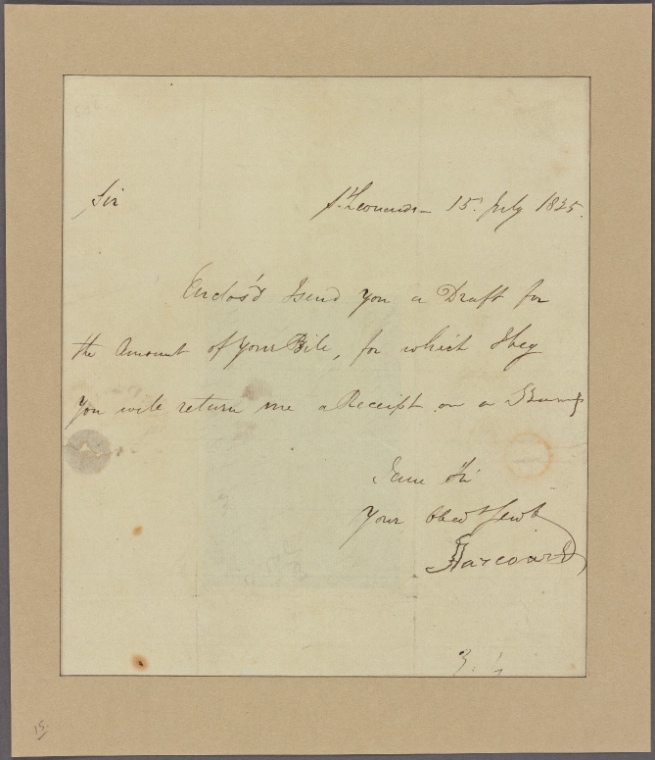 Sir
St. Leonards - 15. July 1825.
Enclos'd I send you a Draft for
the Amount of your Bill, for which I beg
you will return me a Receipt on a Stamp
I am Sir
Your Obedt Servt
Harcourt
15.